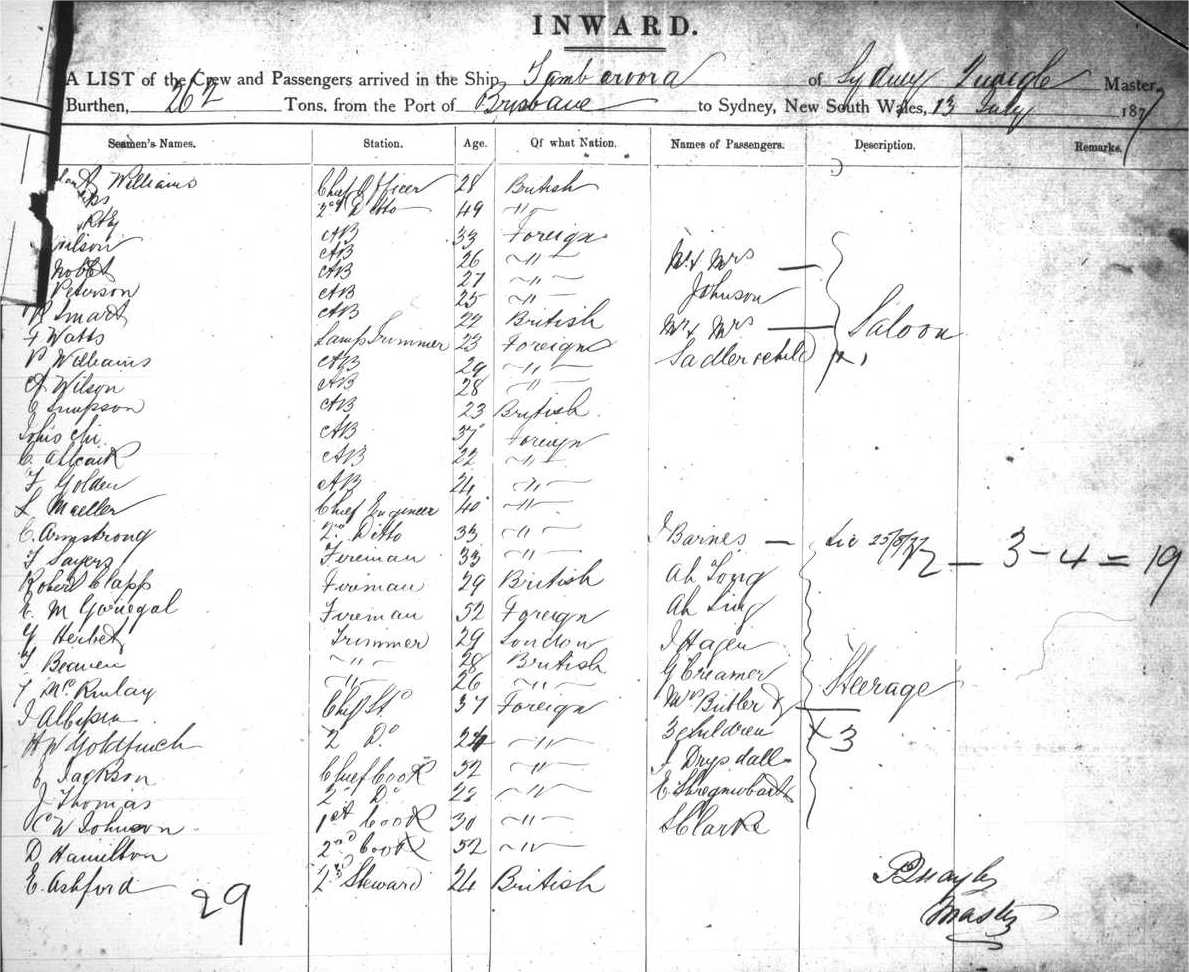 INWARD.
A LIST of the Crew and Passengers arrived in the Ship Tambaroora of Sydney Master,
Burthen, 262 Tons, from the Port of Brisbane to Sydney, New South Wales, 13 July 1877
Seamen's Names. Station. Age. Of what Nation. Names of Passengers. Description. Remarks.
Williams Chief Officer 28 British
2nd Ditto 49 "
AB 33 Foreign
AB 26 " Mr & Mrs
AB 27 "
Peterson AB 25 " Johnson
Smart AB 22 British Mr & Mrs Saloon
F Watts Lamp Trimmer 23 Foreign
P Williams AB 29 " Sadler & child x 1
A Wilson AB 28 "
C Simpson AB 23 British
AB 37 Foreign
AB 22 "
F Golden AB 24 "
Chief Engineer 40 "
C. Armstrong 2nd Ditto 33 " J Barnes 3 - 4 = 19
T Sayers Fireman 33 "
Robert Clapp Fireman 29 British Ah Tong
Fireman 52 Foreign Ah Ling
Herbet Trimmer 29 London J Hagen
" 28 British G Creamer
26 " Steerage
Chief Std 37 Foreign Mrs Butler &
H W Goldfinch 2 Do 24 " 3 children x 3
Jackson Chief Cook 52 " J Drysdall
J Thomas 2 Do 28 "
C W Johnson 1st Cook 30 " S Clarke
D Hamilton 2nd Cook 52 "
E. Ashford Steward 24 British
29
Quayle
Master